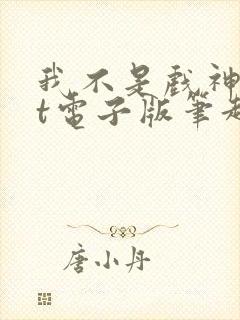 我不是戲神
t電子版筆趣
唐小丹